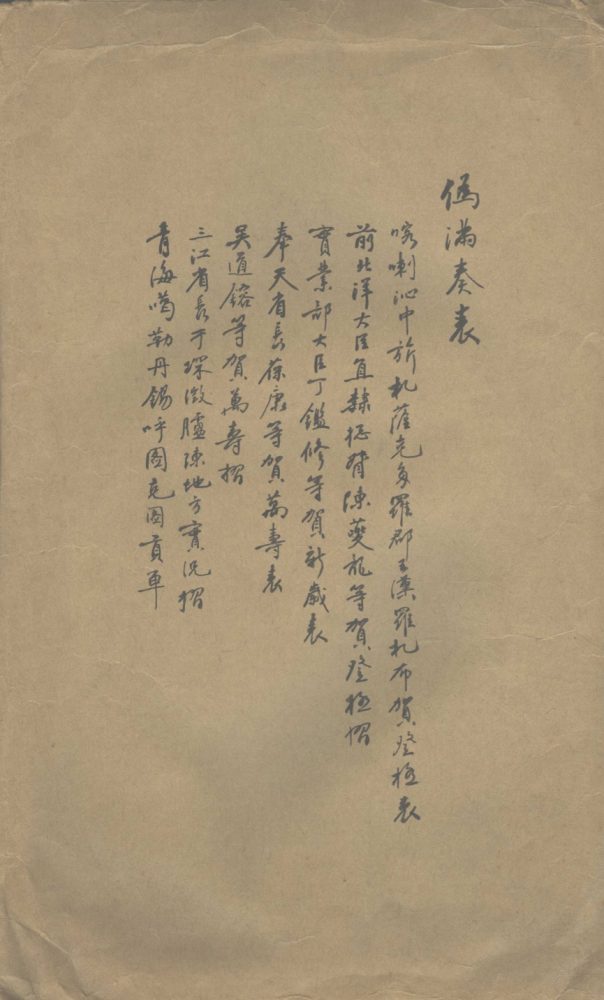 偽滿奏表
喀喇沁中旂札薩克多羅郡王漢羅札布賀登極表
前北洋大臣直隸總督陳夔龍等賀登極摺
實業部大臣丁鑑修等賀新歲表
奉天省長葆康等賀萬壽表
吳道鎔等賀萬壽摺
三江省長于琛澂臚陳地方實況摺
青海噶勒丹錫呼圖克圖貢單